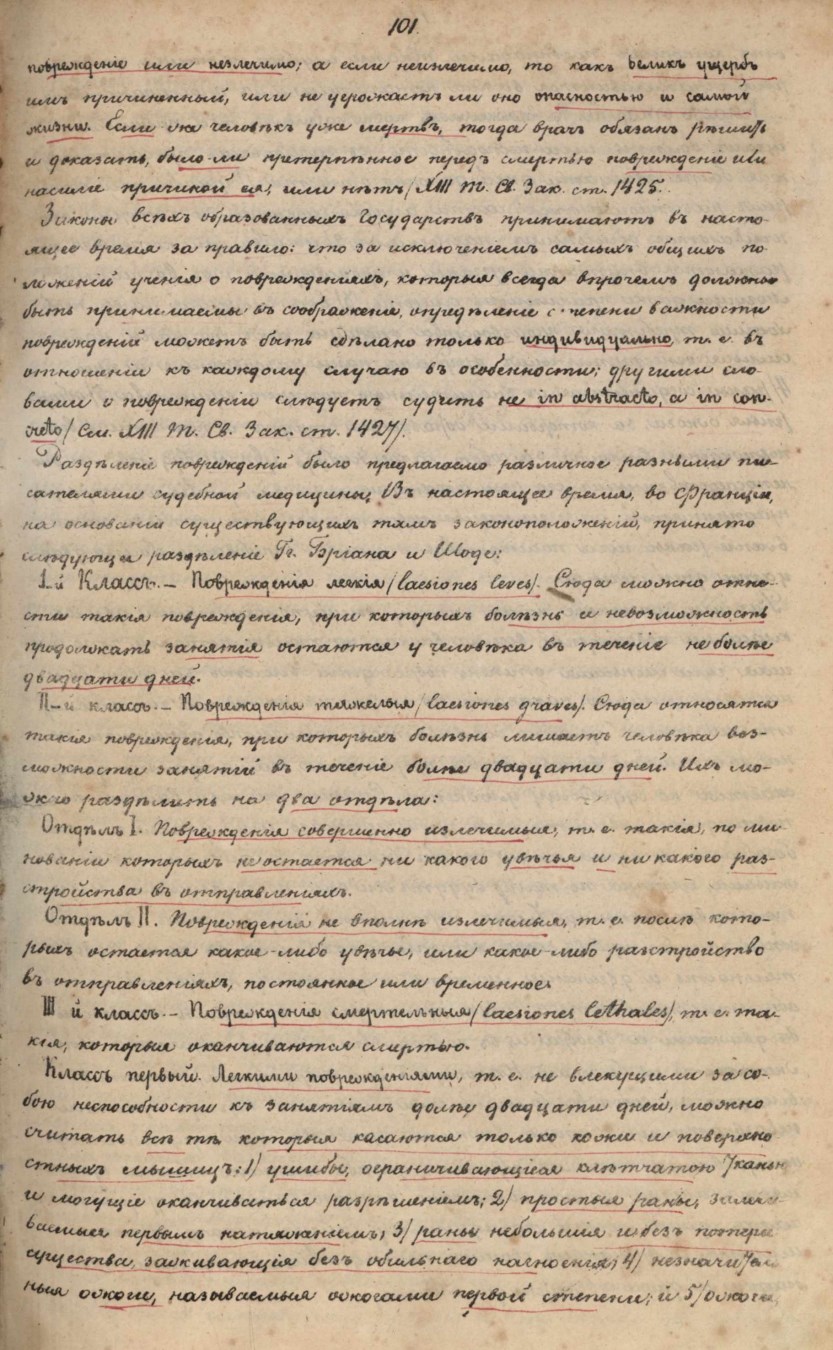 101
поврежденіе или незлечимо; а если неизлечимо, то какъ великъ ущербъ
имъ причиненный, или не угрожаетъ ли оно опасностью и самой
жизни. Если же человѣкъ уже мертвъ, тогда врачъ обязанъ рѣшить
и доказать, было-ли претерпѣнное передъ смертью поврежденіе или
насиліе причиной ея, или нѣтъ/ XIII т. Св. Зак. ст. 1425.
Законы всѣхъ образованныхъ Государствъ принимаютъ въ насто-
ящее время за правило: что за исключеніемъ самыхъ общихъ по-
ложеній ученія о поврежденіяхъ, которыя всегда впрочемъ должны
быть принимаемы въ соображеніе, опредѣленіе степени важности
поврежденій можетъ быть сдѣлано только индивидуально, т. е. въ
отношеніи къ каждому случаю въ особенности; другими сло-
вами о поврежденіи слѣдуетъ судить не in abstracto, а in con-
creto/ См. XIII т. Св. Зак. ст. 1427/.
Раздѣленіе поврежденій было предлагаемо различное разными пи-
сателями судебной медицины. Въ настоящее время, во Франціи,
на основаніи существующихъ тамъ законоположеній, принято
слѣдующее раздѣленіе Гг. Бріана и Шоде:
I-й Классъ. - Поврежденія легкія /laesiones leves/. Сюда можно отне-
сти такія поврежденія, при которыхъ болѣзнь и невозможность
продолжать занятія остаются у человѣка въ теченіе не болѣе
двадцати дней.
II-й классъ. - Поврежденія тяжелыя /laesiones graves/. Сюда относятся
такія поврежденія, при которыхъ болѣзнь лишаетъ человѣка воз-
можности занятій въ теченіе болѣе двадцати дней. Ихъ мо-
жно раздѣлить на два отдѣла:
Отдѣлъ I. Поврежденія совершенно излечимыя, т. е. такія, по ми-
нованіи которыхъ не остается ни какого увѣчья и ни какого раз-
стройства въ отправленіяхъ.
Отдѣлъ II. Поврежденія не вполнѣ излечимыя, т. е. послѣ кото-
рыхъ остается какое-либо увѣчье, или какое-либо разстройство
въ отправленіяхъ, постоянное или временное.
III й классъ. - Поврежденія смертельныя /laesiones lethales/, т. е. та-
кія, которыя оканчиваются смертью.
Классъ первый. Легкими поврежденіями, т. е. не влекущими за со-
бою неспособности къ занятіямъ долѣе двадцати дней, можно
считать всѣ тѣ, которыя касаются только кожи и поверхно
стныхъ мышицъ: 1/ ушибы, ограничивающіеся клѣтчатою тканью
и могущіе оканчиваться разрѣшеніемъ; 2/ простыя раны, зажи-
ваемыя первымъ натяженіемъ; 3/ раны небольшія и безъ потери
существа, заживающія безъ обильнаго нагноенія; 4/ незначитель
ныя ожоги, называемыя ожогами первой степени; и 5/ ожоги